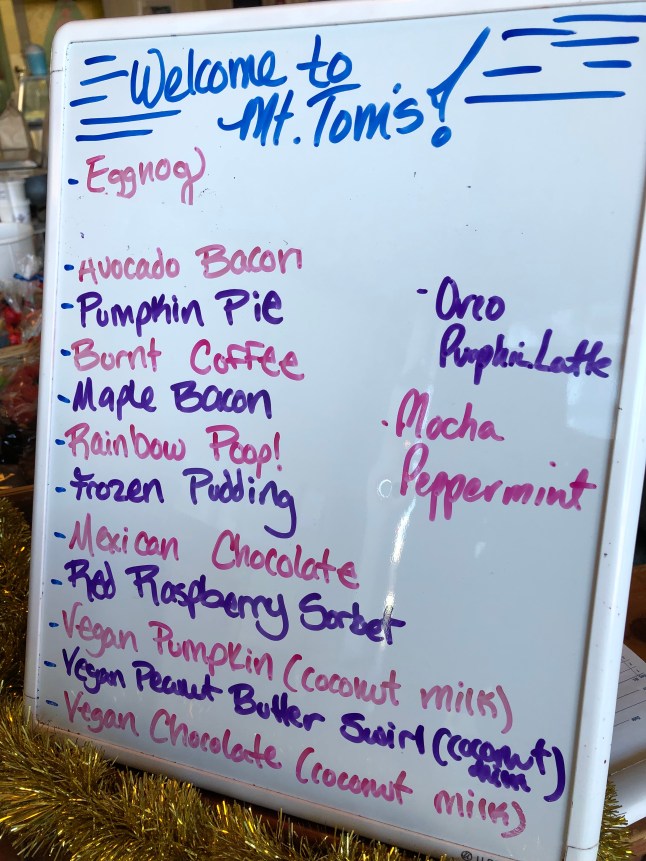 Welcome to
Mt. Tom's!
- Eggnog
- Avocado Bacon
- Pumpkin Pie
- Burnt Coffee
- Maple Bacon
- Rainbow Poop!
- Frozen Pudding
- Mexican Chocolate
- Red Raspberry Sorbet
- Vegan Pumpkin (coconut milk)
- Vegan Peanut Butter Swirl (coconut)
- Vegan Chocolate (coconut milk)
- Oreo
Pumpkin Latte
- Mocha
Peppermint